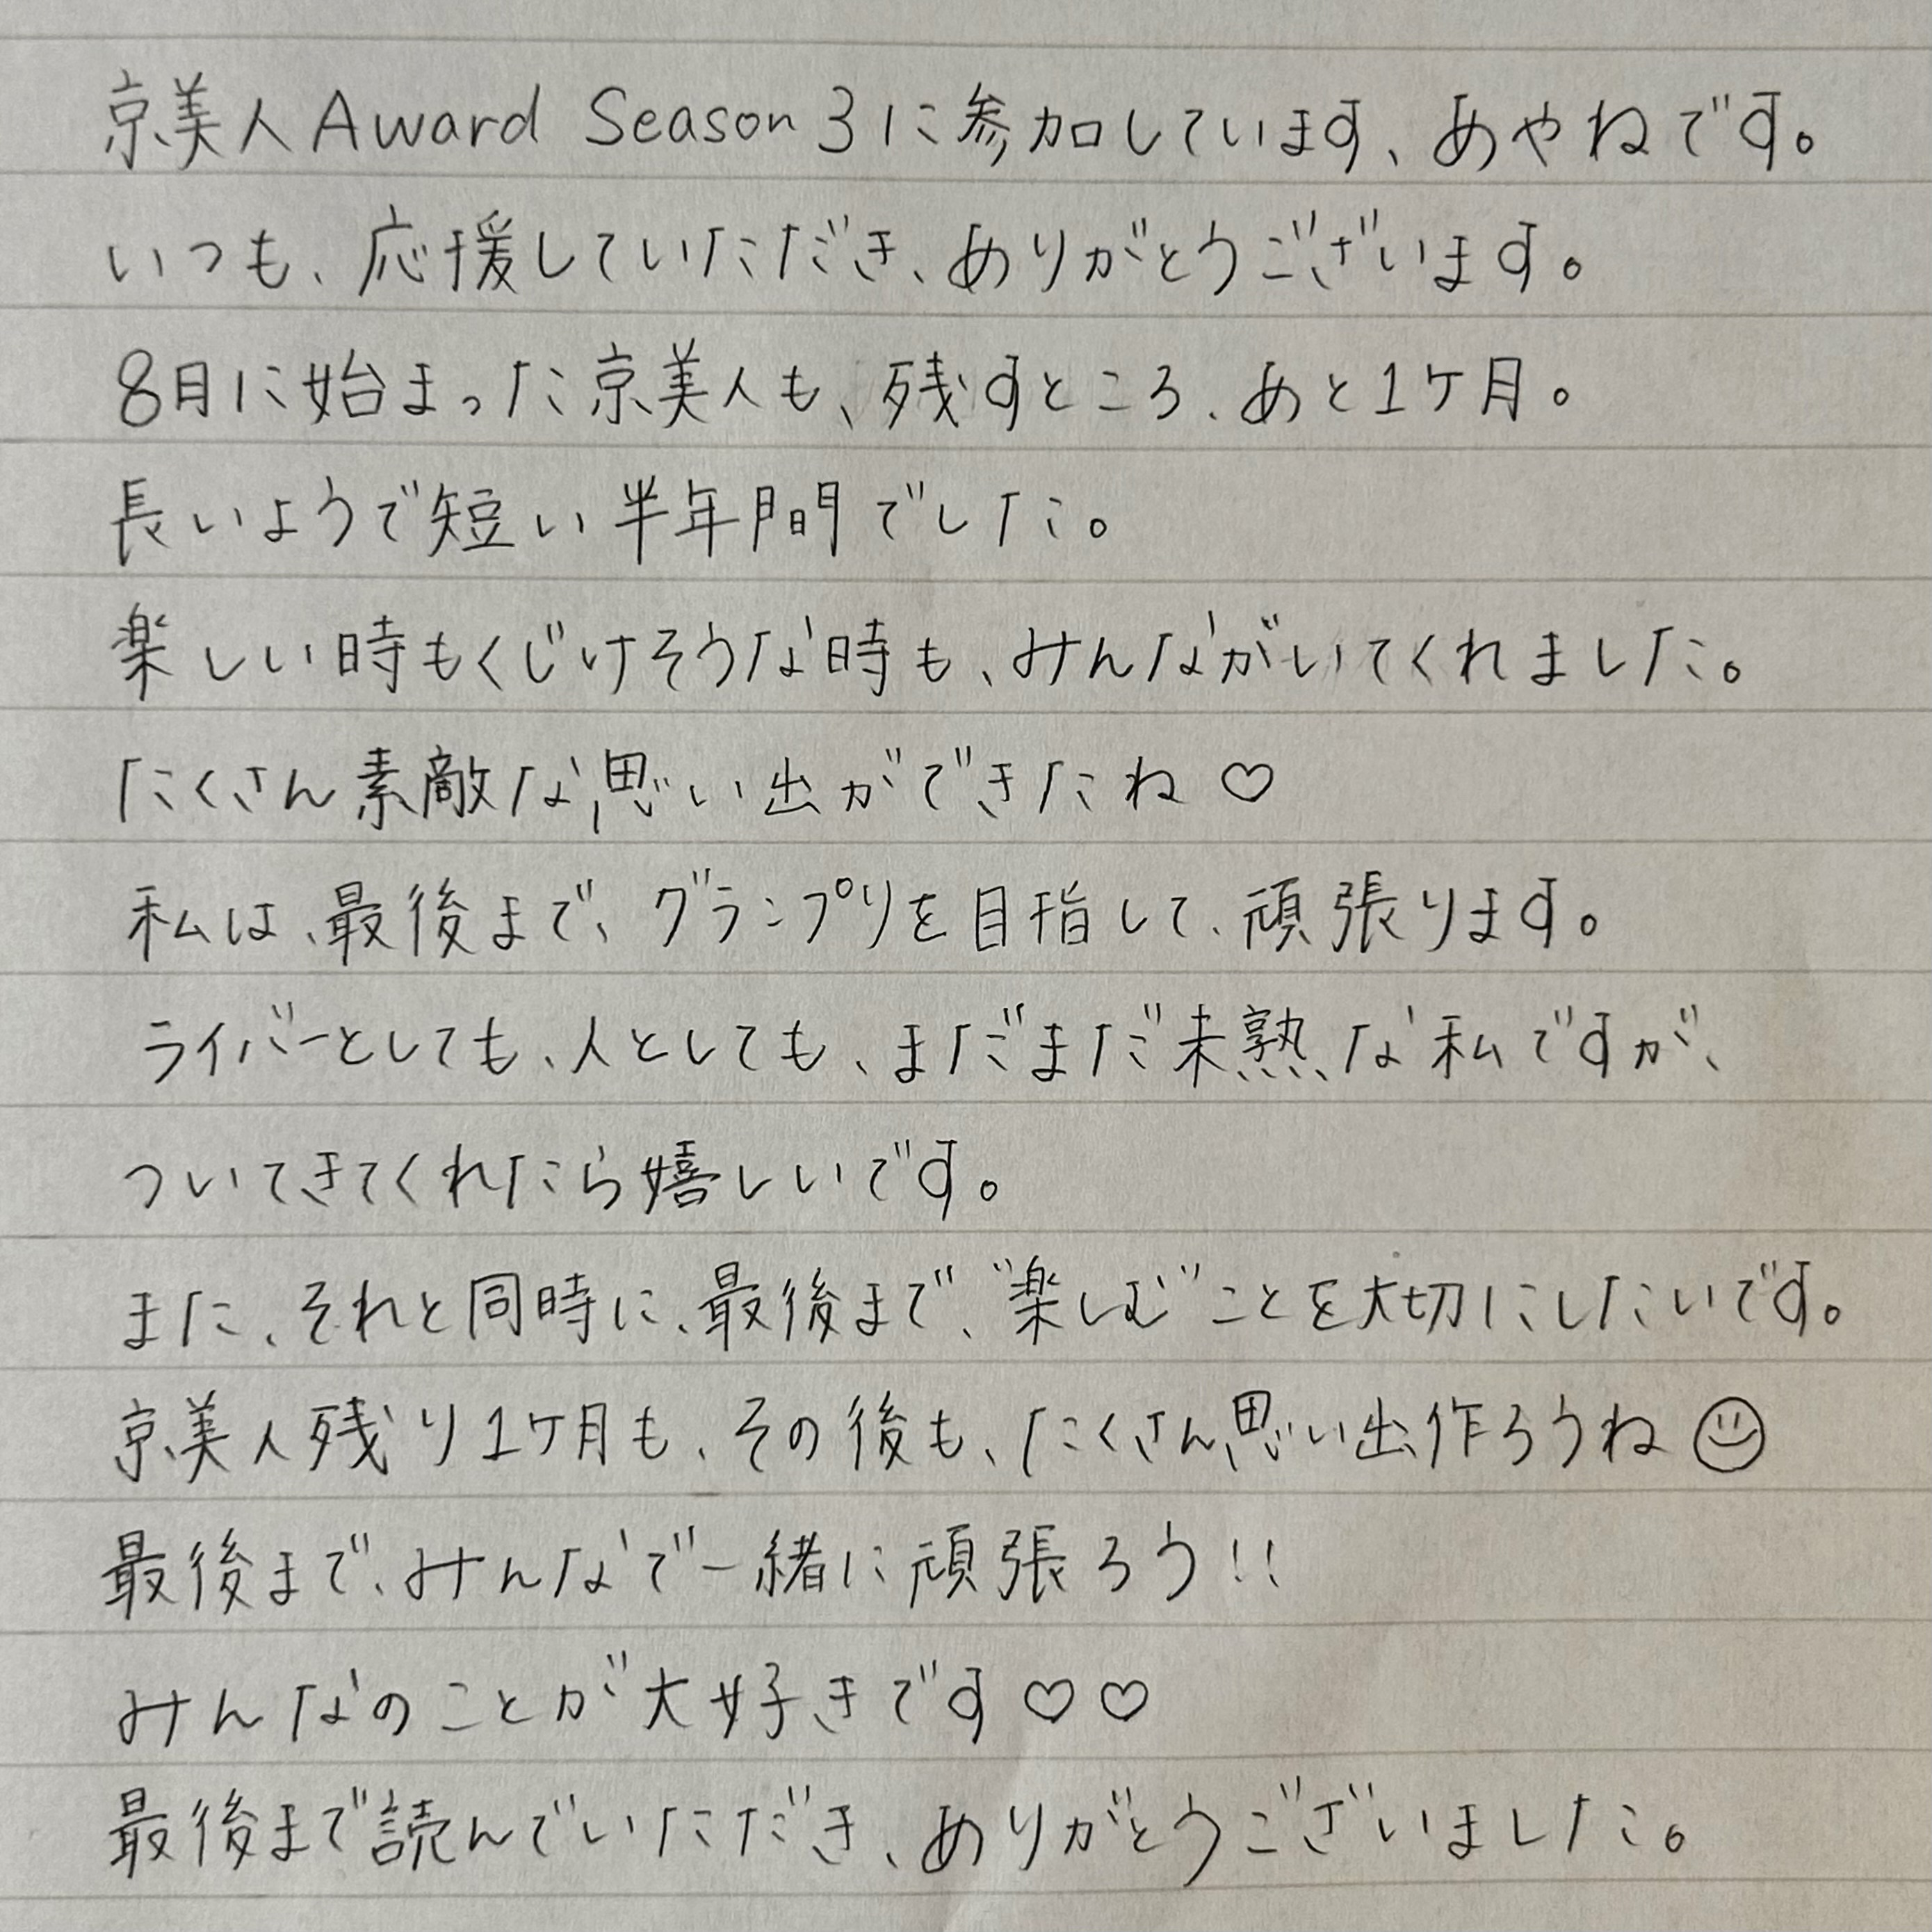 京美人Award Season3に参加しています、あやねです。
いつも、応援していただき、ありがとうございます。
8月に始まった京美人も、残すところ、あと1ケ月。
長いようで短い半年間でした。
楽しい時もくじけそうな時も、みんながいてくれました。
たくさん素敵な思い出ができたね♡
私は、最後まで、グランプリを目指して、頑張ります。
ライバーとしても、人としても、まだまだ未熟な私ですが、
ついてきてくれたら嬉しいです。
また、それと同時に、最後まで、"楽しむ"ことを大切にしたいです。
京美人残り1ケ月も、その後も、たくさん思い出作ろうね☺
最後まで、みんなで一緒に頑張ろう!!
みんなのことが大好きです♡♡
最後まで読んでいただき、ありがとうございました。